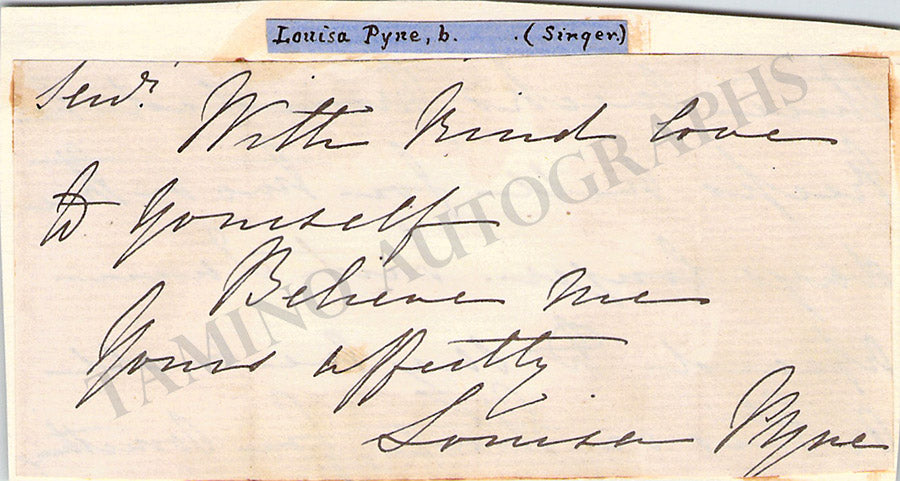 Louisa Pyne, b. . (Singer)
With kind love
to yourself
Believe me
Yours affectly
Louisa Pyne
TAMINO AUTOGRAPHS